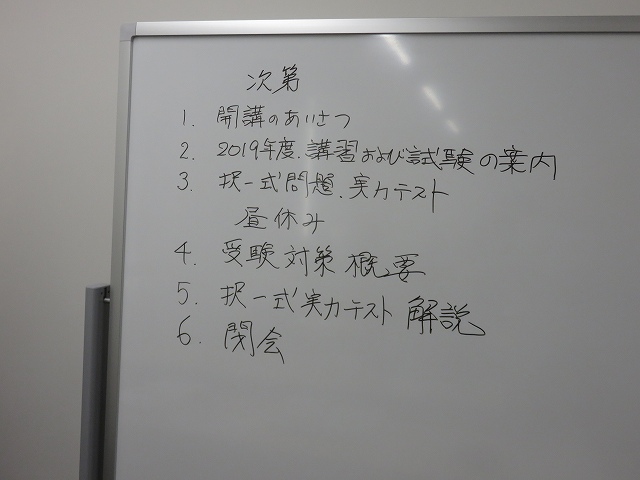 次第
1. 開講のあいさつ
2. 2019年度.講習および試験の案内
3. 択一式問題.実力テスト
昼休み
4. 受験対策概要
5. 択一式実力テスト解説
6. 閉会